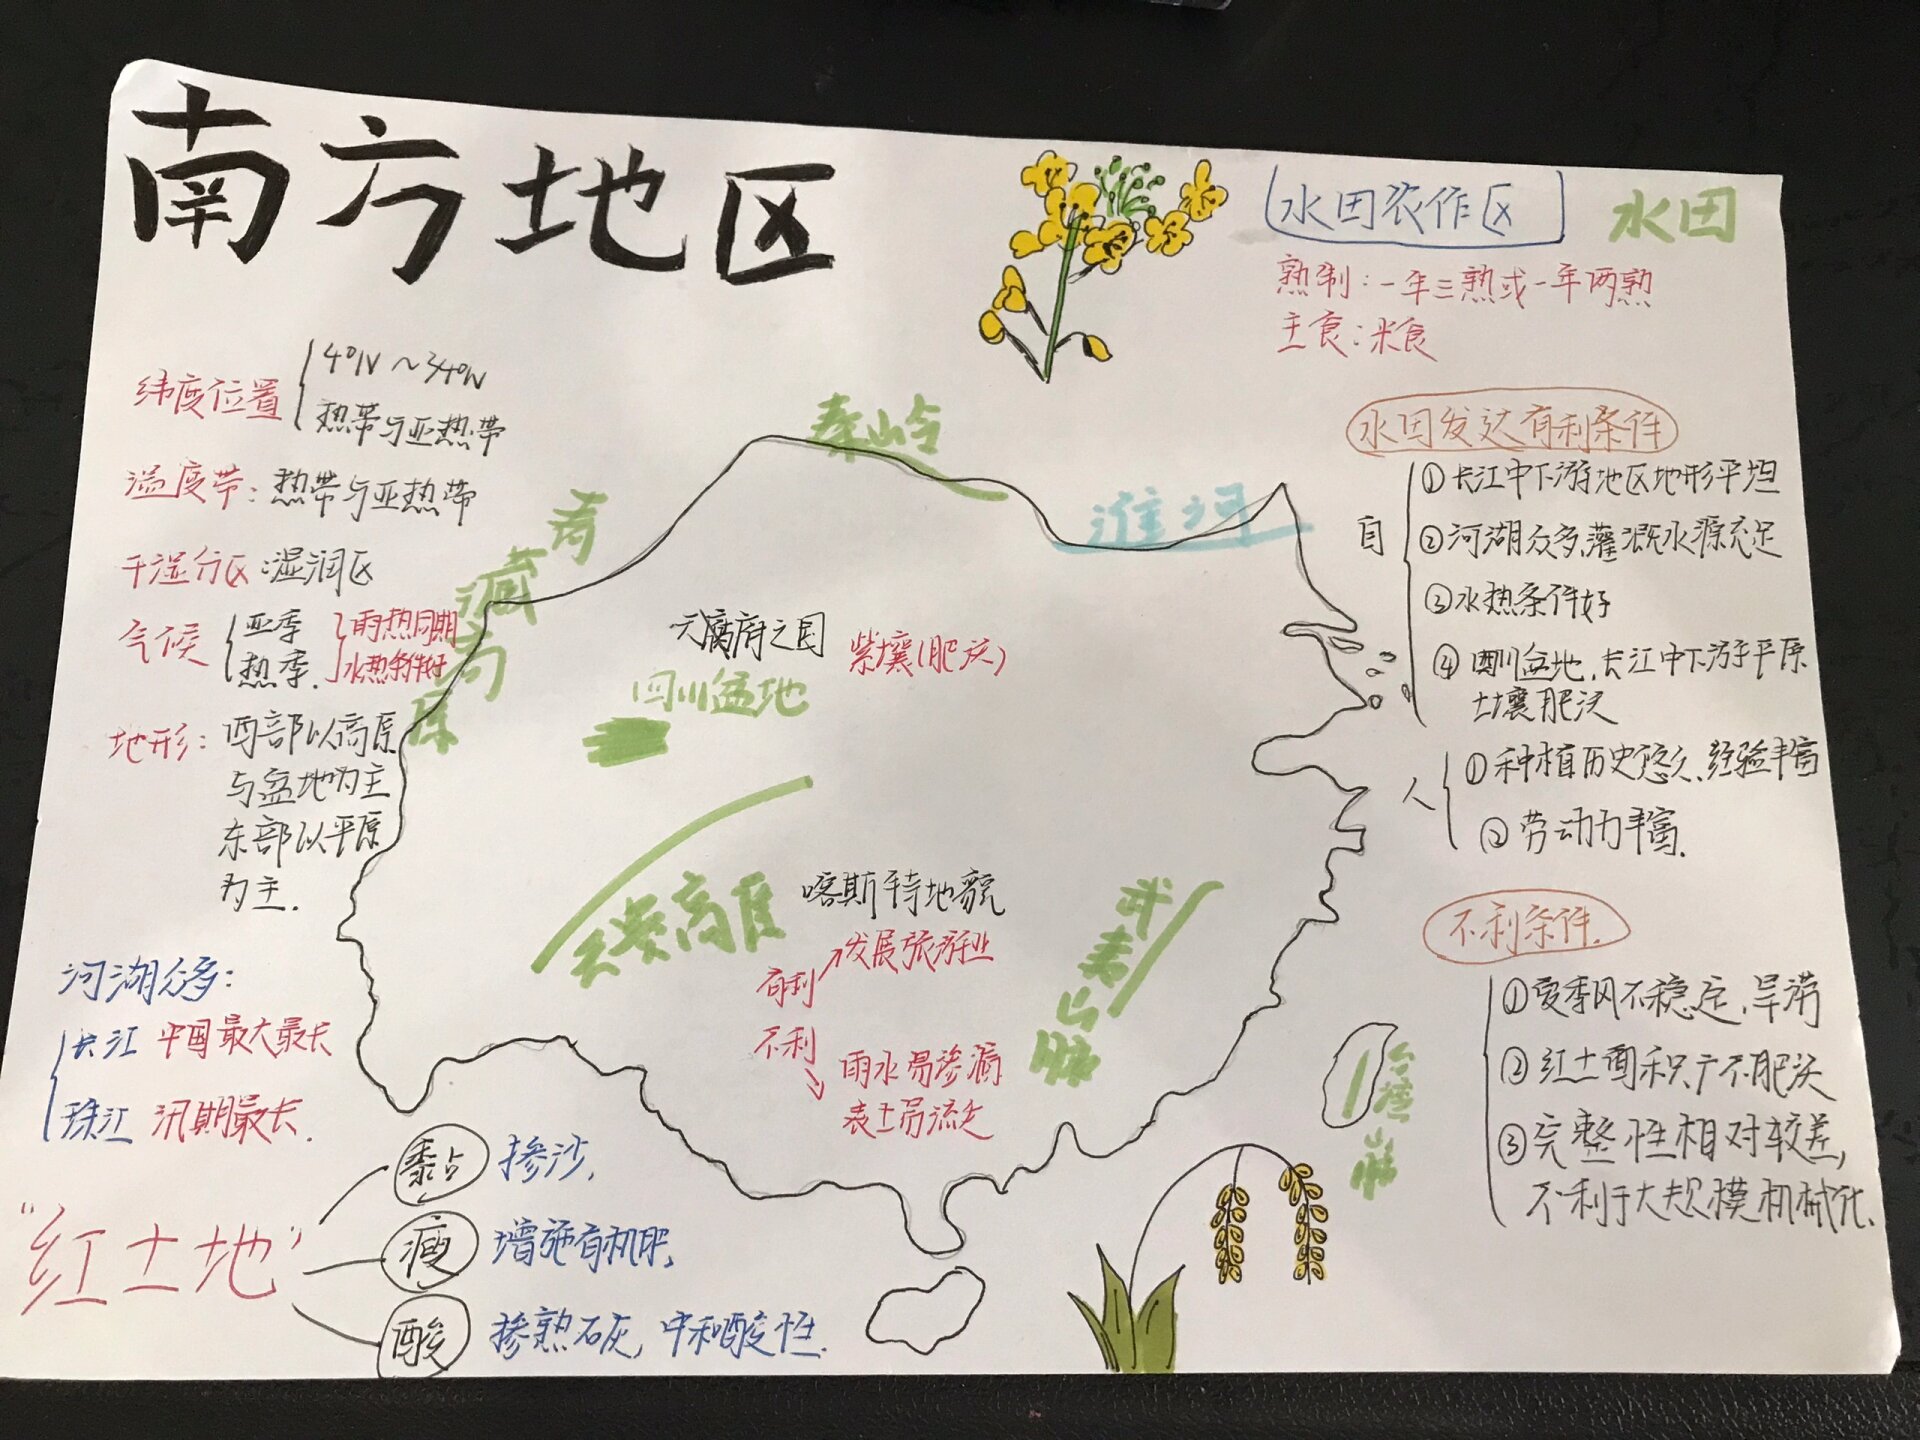 南方地区
水田农作区
水田
熟制：一年三熟或一年两熟
主食：米食
纬度位置
4°N～34°N
热带与亚热带
温度带：热带与亚热带
干湿分区：湿润区
气候
亚季
热季.
雨热同期
水热条件好
地形：西部以高原
与盆地为主
东部以平原
为主.
河湖众多：
长江 中国最大最长
珠江 汛期最长.
“红土地”
黏 掺沙,
瘦 增施有机肥,
酸 掺熟石灰,中和酸性.
秦岭
淮河
青藏高原
天府之国
紫壤(肥沃)
四川盆地
云贵高原
喀斯特地貌
有利 发展旅游业
不利 雨水易渗漏
表土易流失
武夷山脉
台湾山脉
水田发达有利条件
自
①长江中下游地区地形平坦
②河湖众多,灌溉水源充足
③水热条件好
④四川盆地,长江中下游平原
土壤肥沃
人
①种植历史悠久,经验丰富
②劳动力丰富.
不利条件.
①夏季风不稳定,旱涝
②红土面积广不肥沃
③完整性相对较差,
不利于大规模机械化.